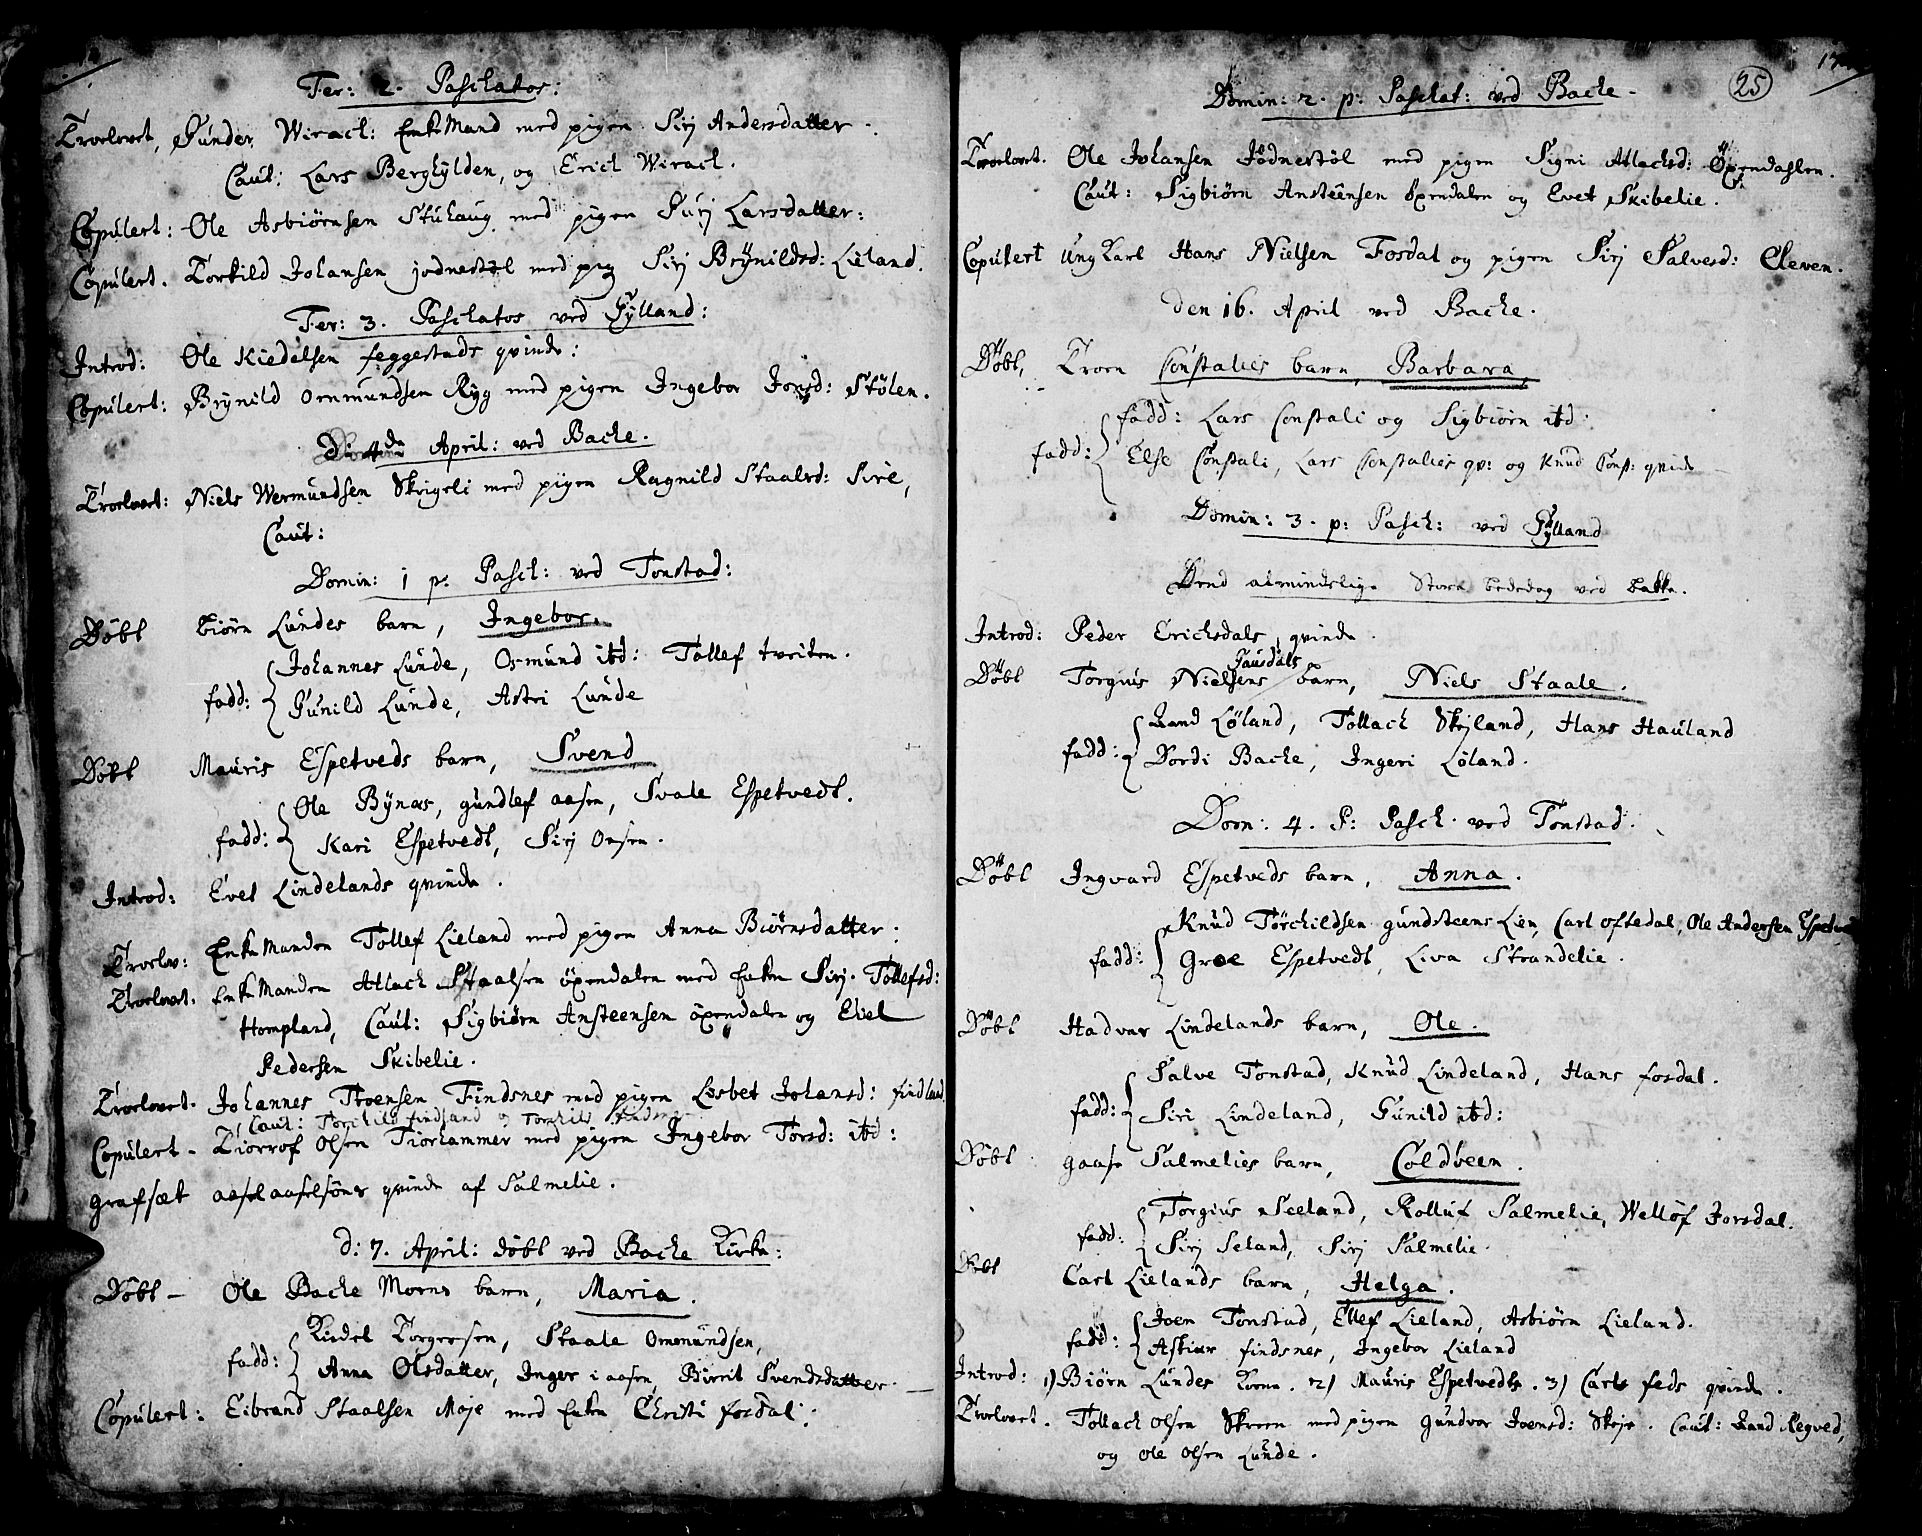 Fer: 2. Paschatos:
Troelovet, Gunder Wirach: EnkeMand med pigen Sirj Andersdatter.
Caut: Lars Berghylden, og Erich Wirach.
Copulert: Ole Asbiörnsen Stuhaug med pigen Gurj Larsdatter:
Copulert. Torkild Johansen jodnestöl med pig Sirj Brÿnildsd: Lieland.
Fer: 3. Paschatos ved Gÿlland:
Introd: Ole Kiedelsen feggestads qvinde:
Copulert: Brÿnild Ommundsen Rÿg med pigen Ingebor Jonsd: Stölen.
April: ved Bache.
Troelovet: Niels Wermundsen Skrigeli med pigen Ragnild Staalsd: Sirie,
Caut:
Domin: 1 p: Pasch: ved Tonstad:
Döbt Biörn Lundes barn, Ingebor.
Johannes Lunde, Osmund itd: Tollef tveiten.
fadd: Gunild Lunde, Astri Lunde
Döbt Mauris Espetveds barn, Svend
Ole Bÿnæs, gundlef aasen, Svale Espetvedt.
fadd: Kari Espetvedt, Sirj Oufen.
Introd: Evet Lindelands qvinde.
Troelov: EnkeManden Tollef Lieland med pigen Anna Biörnsdatter:
Troelovet. EnkeManden Atlach Staalsen öxendalen med Enken Sirj Tollefsd:
Hompland, Caut: Sigbiörn Ansteensen öxendalen og Eiel
Pedersen Skibelie.
Troelovet. Johannes Troensen Findsnes med pigen Lisbet Johansd: findland
Caut: Torchild findland og Torchild findsnes
Copulert - Tiorrof Olsen Tiorhammer med pigen Ingebor Torsd: itd:
grafsæt aasel aaselsöns qvinde af Salmelie.
d: 7. April: döbt ved Bache Kirke:
Döbt - Ole Bache Moens barn, Maria.
Kidel Torgersen, Staale Ommundsen,
fadd: Anna Olsdatter, Inger i aasen, Birrit Svendsdatter.
Copulert: Eibrand Staalsen Moje med Enken Christi fosdal:
25
Domin: 2. p: Paschat: ved Bache
Troelovet. Ole Johansen Jödnestöl med pigen Signi Atlachsd: Öxendahlen.
Caut: Sigbiörn Ansteensen öxendalen og Evet Skibelie.
Copulert Ung Karl Hans Nielsen Fosdal og pigen Sirj Salvesd: Eleven.
den 16. April ved Bache.
Döbt, Troen Constalies barn, Barbara,
fadd: Lars Constali og Sigbiörn itd:
fadd: Else Constali, Lars Constalies qv: og Knud Const: qvinde
Domin: 3. p: Pasch: ved Gÿlland
Dend almindelige Store bededag ved bakke.
Introd: Peder Erichsdals, qvinde.
Gausdals
Döbt Torgius Nielsens barn, Niels Staale.
Rand Löland, Tollach Skejland, Hans Hauland
fadd: Dordi Bache, Ingeri Löland.
Dom: 4. P: Pasch. ved Tonstad.
Döbt Ingvard Espetveds barn, Anna.
Knud Törchildsen gundsteens Lien, Carl oftedal, Ole Andersen Espetved
fadd: Groe Espetvedt, Liva Strandelie.
Döbt Hadvar Lindelands barn, Ole.
Salve Tonstad, Knud Lindeland, Hans fosdal.
fadd: Siri Lindeland, Gunild itd:
Döbt gaase Salmelies barn, Coldveen.
Torgius Seeland, Rolluf Salmelie, Wellöf Josdal.
fadd: Sirj Seland, Sirj Salmelie.
Döbt Carl Lielands barn, Helga.
Joen Tonstad, Ellef Lieland, Asbiörn Lieland.
fadd: Astier findsnes, Ingebor Lieland
Introd: 1) Biörn Lundes Kone. 2) Mauris Espetvedts. 3) Carls feds qvinde.
Troelovet. Tollach Olsen Skreen med pigen gundvor Joensd: Skeje. Caut: Rand Regved,
og Ole Olsen Lunde.